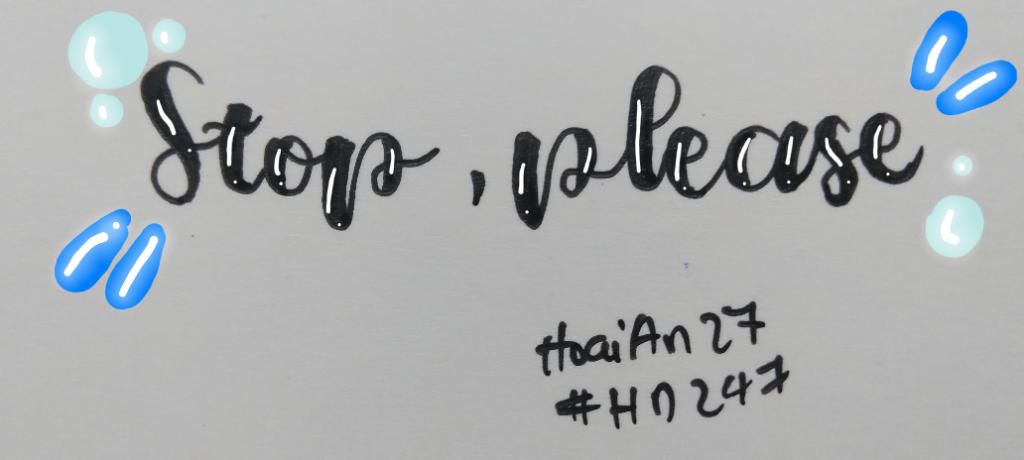 Stop, please
HoaiAn 27
#Hn247